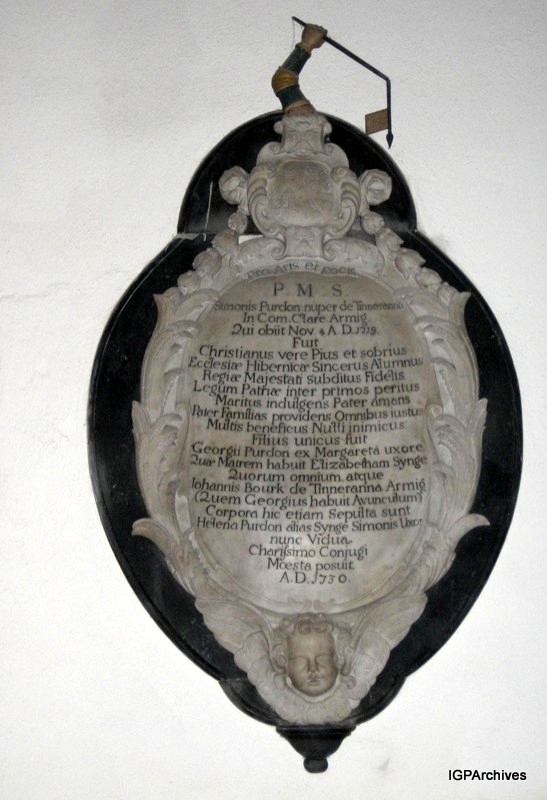 Pro Aris et Focis
P M S
Simonis Purdon nuper de Tinneranna
In Com. Clare Armig.
Qui obiit Nov. 4 A.D. 1719.
Fuit
Christianus vere Pius et sobrius
Ecclesiæ Hibernicæ Sincerus Alumnus
Regiæ Majestati Subditus Fidelis
Legum Patriæ inter primos peritus
Maritus indulgens Pater amans
Pater Familias providens Omnibus iustus
Multis beneficus Nulli inimicus
Filius unicus fuit
Georgii Purdon ex Margareta uxore
Quæ Matrem habuit Elizabetham Synge
Quorum omnium atque
Iohannis Bourk de Tinneranna Armig
(Quem Georgius habuit Avunculum)
Corpora hic etiam Sepulta sunt
Helena Purdon alias Synge Simonis Uxor
nunc Vidua
Charissimo Conjugi
Mœsta posuit
A.D. 1730.
IGPArchives